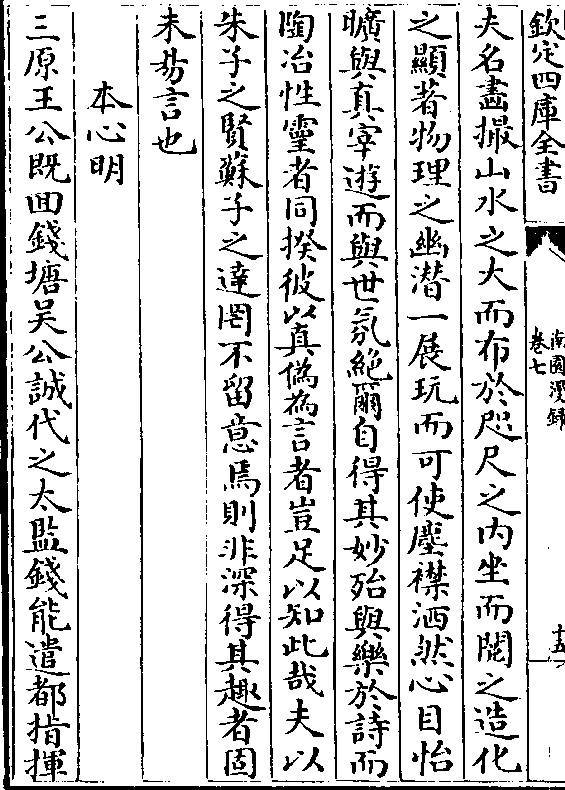 欽定四庫全書
南園漫録
卷七
十五
夫名畫撮山水之大而布於咫尺之内坐而閲之造化
之顯者物理之幽潜一展玩而可使塵襟洒然心目怡
曠與真宰遊而與世氛絶爾自得其妙殆與樂於詩而
陶冶性靈者同揆彼以真僞為言者豈足以知此哉夫以
朱子之賢蘇子之達罔不留意焉則非深得其趣者固
未易言也
本心明
三原王公既回錢塘吴公誠代之太監錢能遣都指揮